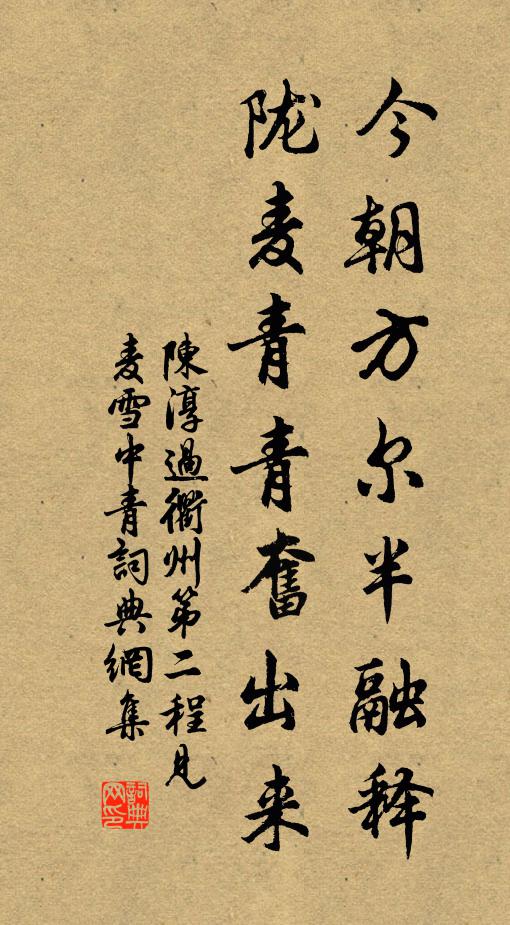 今朝方尔半融释
陇麦青青奮出来
陳淳過衢州第二程見
麦雪中青詞典網集
詞典网印